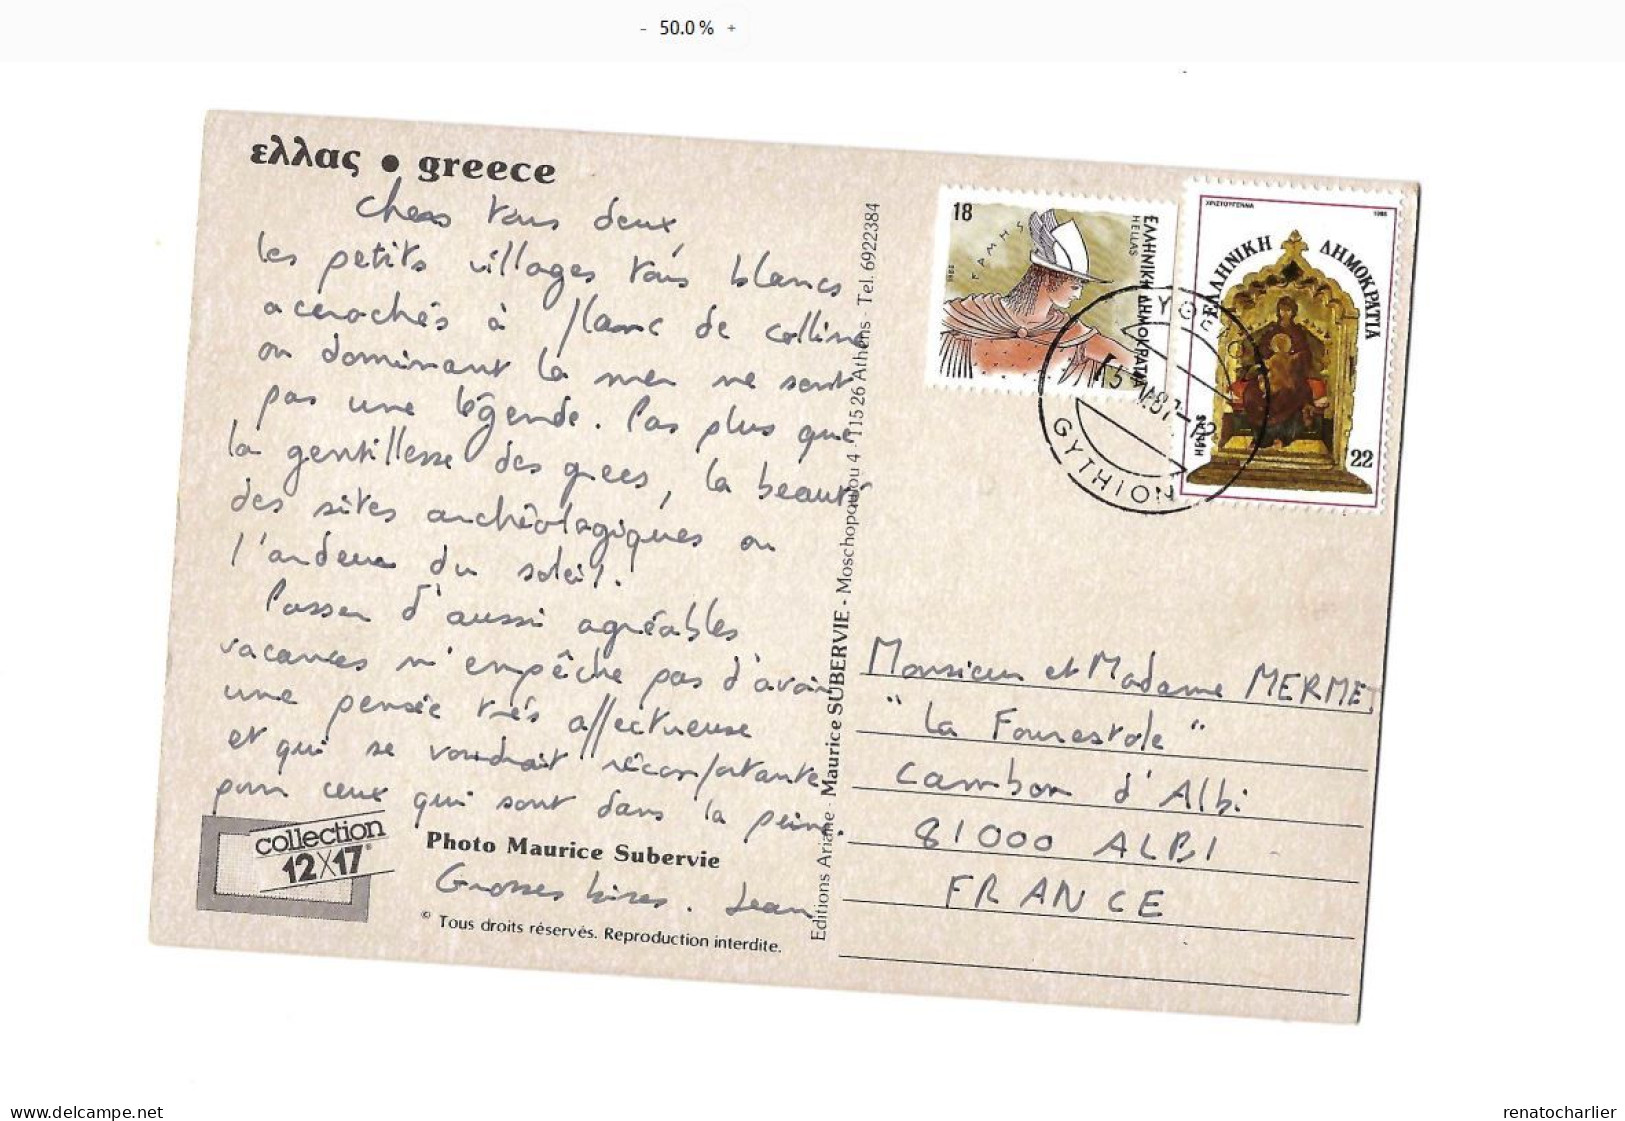 - 50.0 % +
ελλας • greece
Chers tous deux,
les petits villages tous blancs
accrochés à flanc de colline
ou dominant la mer ne sont
pas une légende. Pas plus que
la gentillesse des grecs, la beauté
des sites archéologiques ou
l'ardeur du soleil.
Passer d'aussi agréables
vacances n'empêche pas d'avoir
une pensée très affectueuse
et qui se voudrait réconfortante
pour ceux qui sont dans la peine.
Grosses bises. Jean
collection
12X17
Photo Maurice Subervie
© Tous droits réservés. Reproduction interdite.
Editions Ariane - Maurice SUBERVIE - Moschopoulou 4 - 115 26 Athens - Tel. 6922384
18
ΕΡΜΗΣ
ΕΛΛΗΝΙΚΗ ΔΗΜΟΚΡΑΤΙΑ
HELLAS
ΧΡΙΣΤΟΥΓΕΝΝΑ
ΕΛΛΗΝΙΚΗ ΔΗΜΟΚΡΑΤΙΑ
22
GYTHION
Monsieur et Madame MERMET
"La Fourestole"
Cambon d'Albi
81000 ALBI
FRANCE
www.delcampe.net
renatocharlier